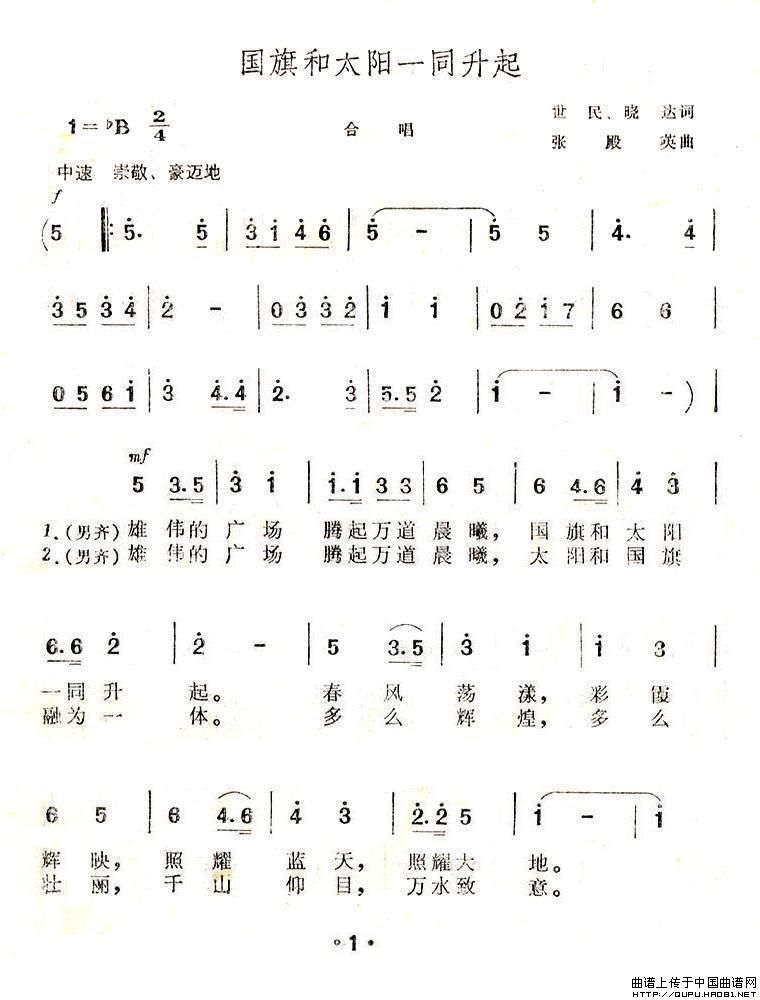 国旗和太阳一同升起
1=♭B 2/4
合 唱
世 民、晓 达词
张 殿 英曲
中速 崇敬、豪迈地
f
(5 ‖: 5. 5 | 3 1 4 6 | 5 - | 5 5 | 4. 4 |
3 5 3 4 | 2 - | 0 3 3 2 | 1 1 | 0 2 1 7 | 6 6 |
0 5 6 1 | 3 4.4 | 2. 3 | 5.5 2 | 1 - | 1 -) |
mf
5 3.5 | 3 1 | 1.1 3 3 | 6 5 | 6 4.6 | 4 3 |
1.(男齐)雄 伟的 广 场 腾起万道 晨 曦, 国 旗和 太 阳
2.(男齐)雄 伟的 广 场 腾起万道 晨 曦, 太 阳和 国 旗
6.6 2 | 2 - | 5 3.5 | 3 1 | 1 3 |
一同 升 起。 春 风 荡 漾, 彩 霞
融为 一 体。 多 么 辉 煌, 多 么
6 5 | 6 4.6 | 4 3 | 2.2 5 | 1 - | 1
辉 映, 照 耀 蓝 天, 照耀大 地。
壮 丽, 千 山 仰 目, 万水致 意。
1
曲谱上传于中国曲谱网
HTTP://QUPU.HAO81.NET